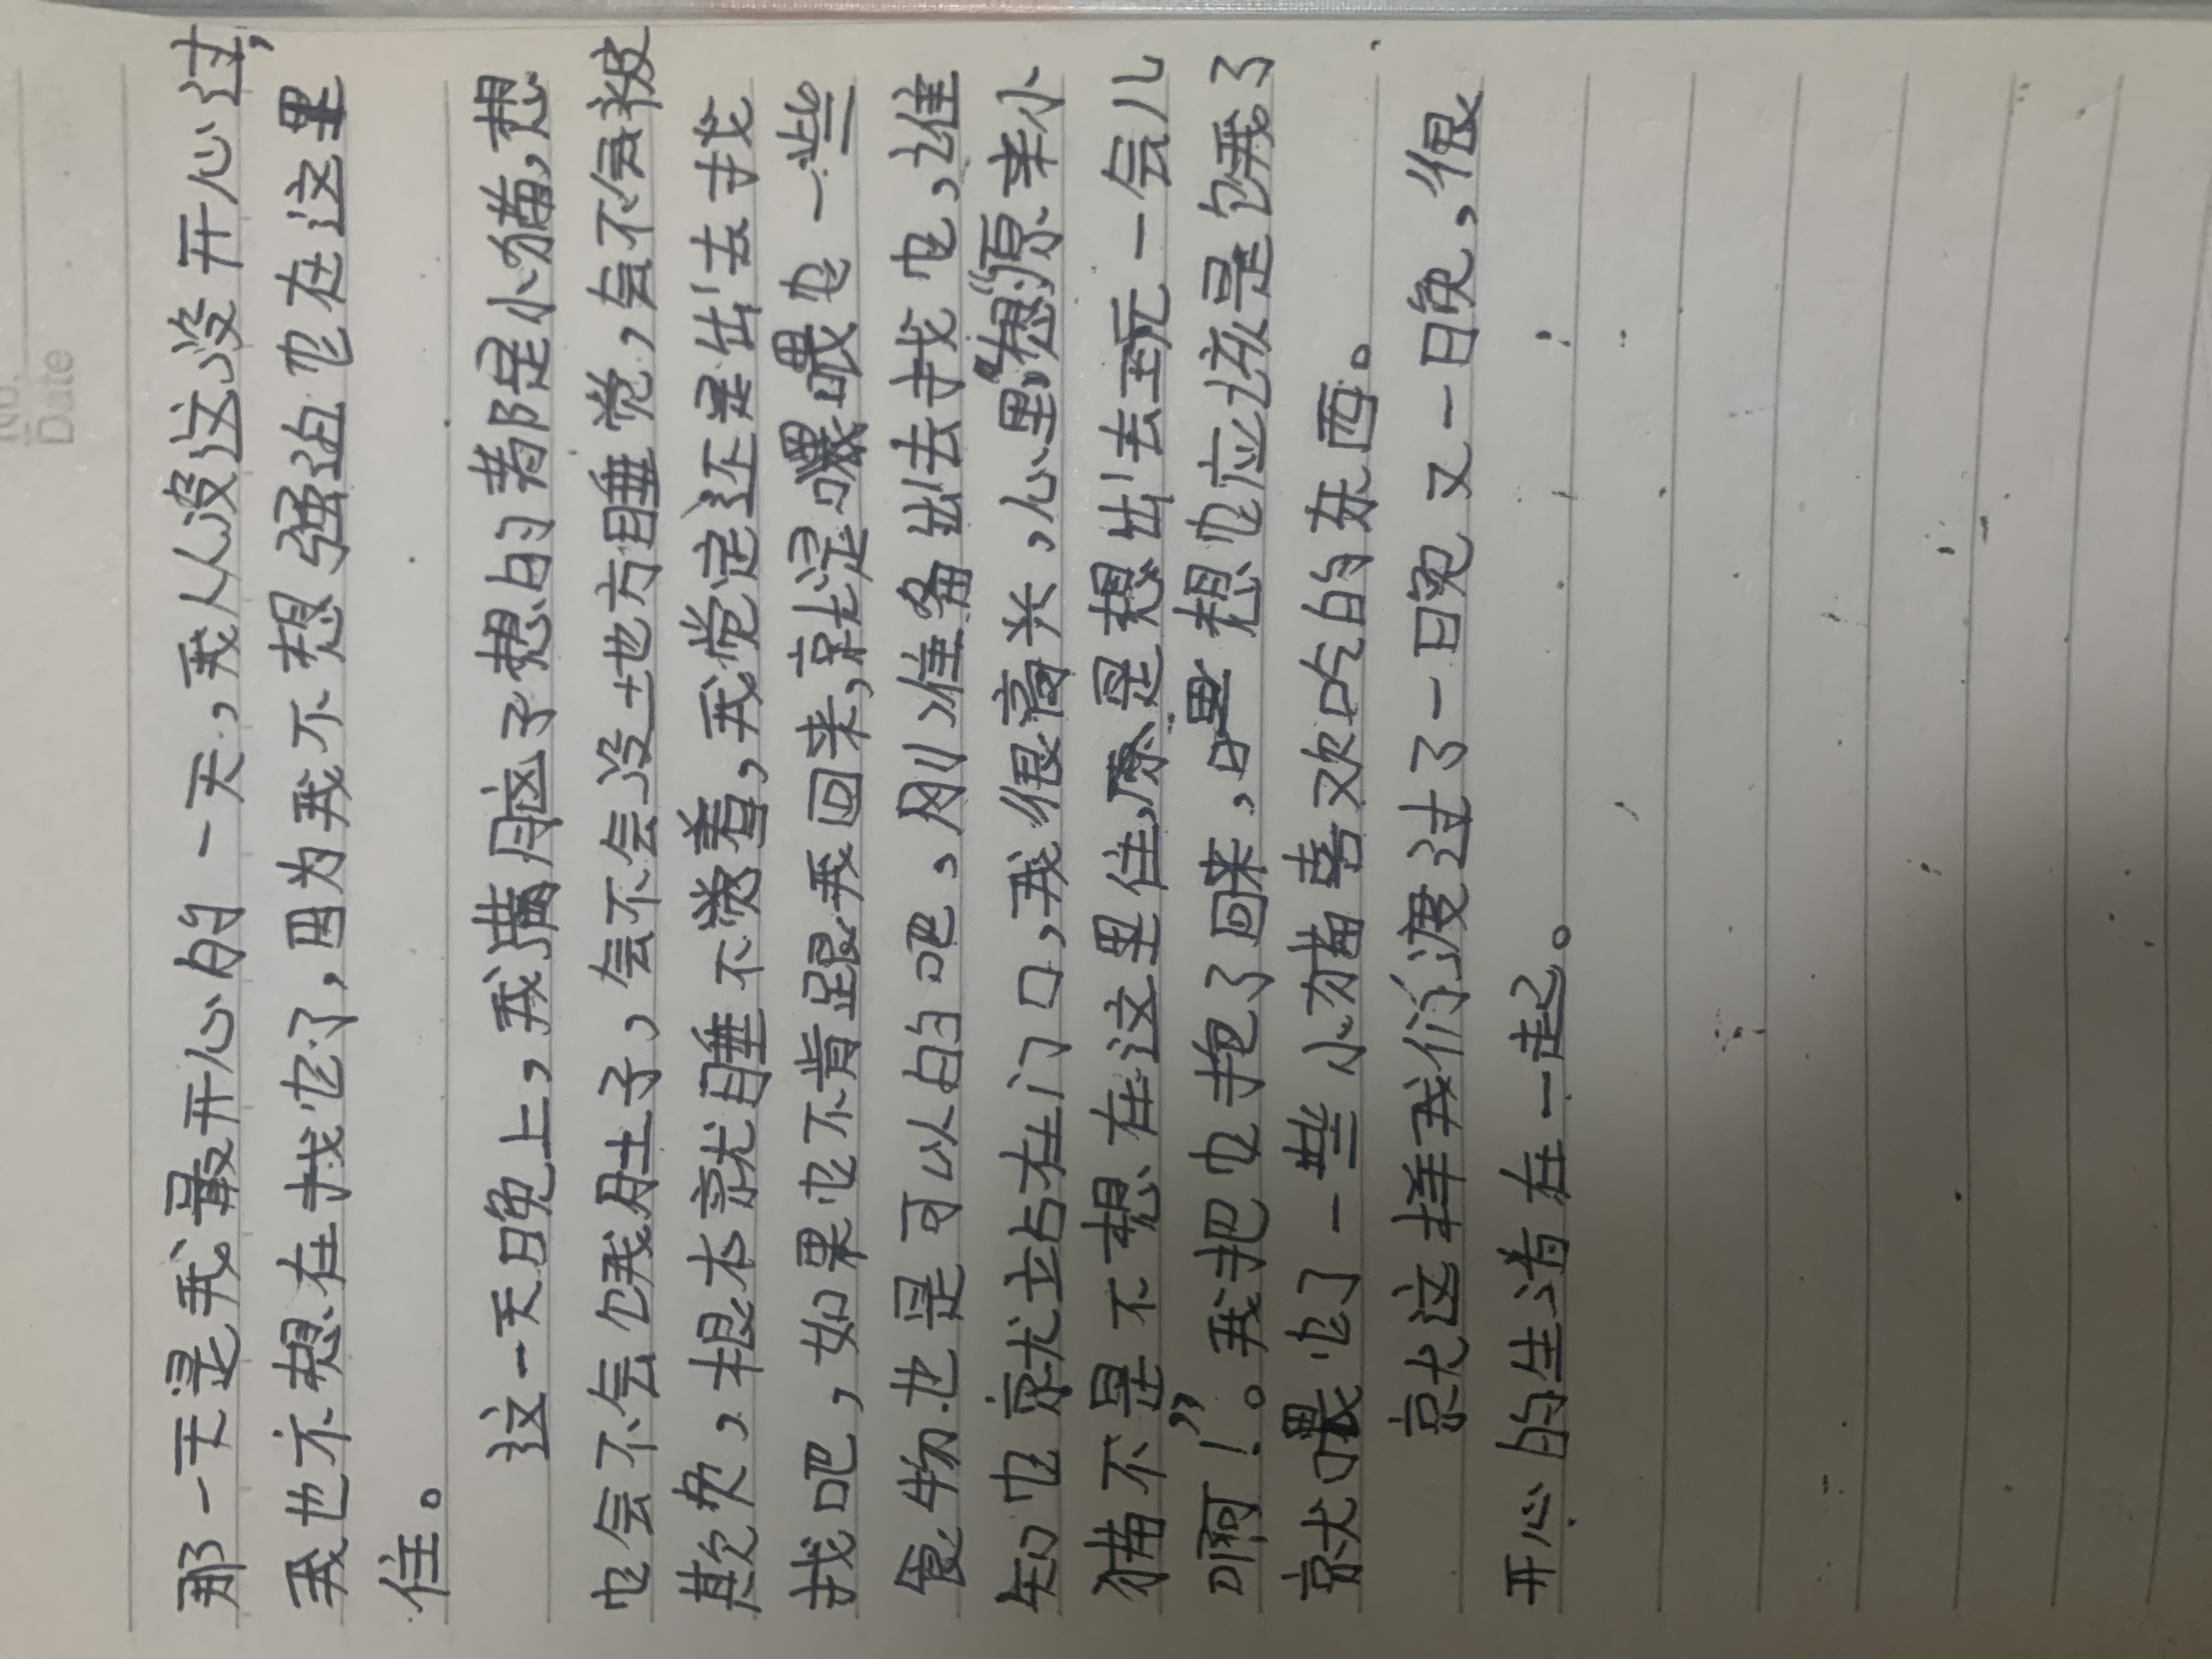 No.
Date
那一天是我最开心的一天，我人没这没开心过，
我也不想在找它了，因为我不想强迫它在这里
住。
这一天晚上，我满脑子想的都是小猫，想
它会不会饿肚子，会不会没地方睡觉，会不会被
欺负，根本就睡不觉着，我觉定还是出去找
找吧，如果它不肯跟我回来，就是喂它一些
食物也是可以的吧，刚准备出去找它，谁
知它就站在门口，我很高兴，心里想“原来小
猫不是不想在这里住，原是想出去玩一会儿
啊！”。我把它抱了回来，里想它应该是饿了
就喂它了一些小猫喜欢吃的东西。
就这样我们渡过了一晚又一晚，很
开心的生活在一起。